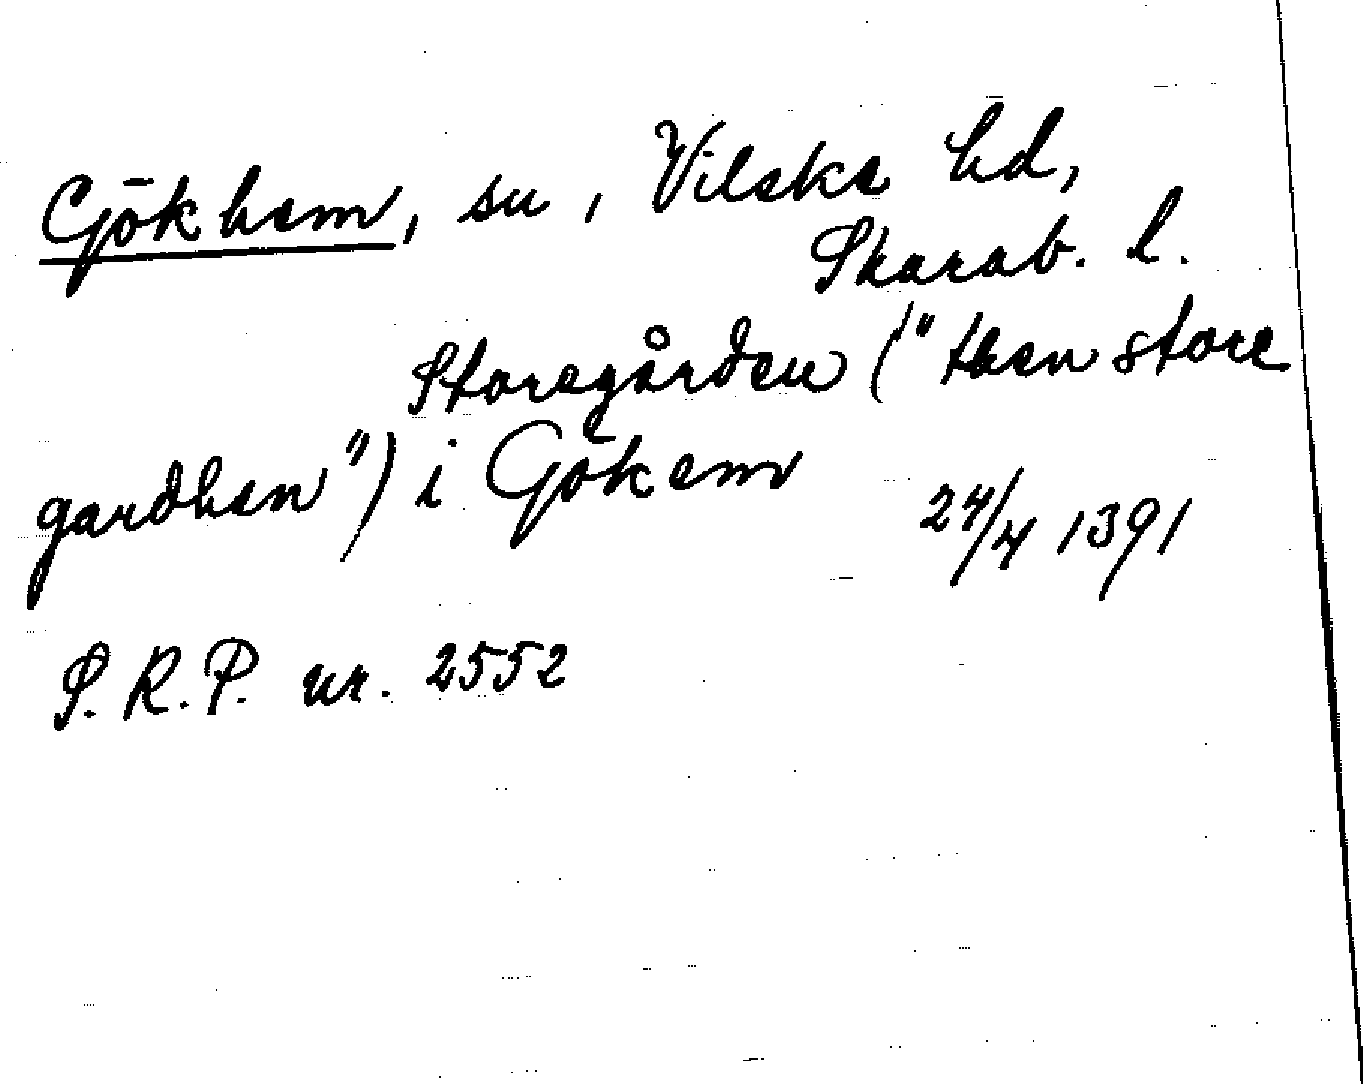 Gökhem, sn, Vilske hd,
Skarab. l.
Storegården ("then store
gardhen") i Gökem 24/4 1391
S.R.P. nr. 2552